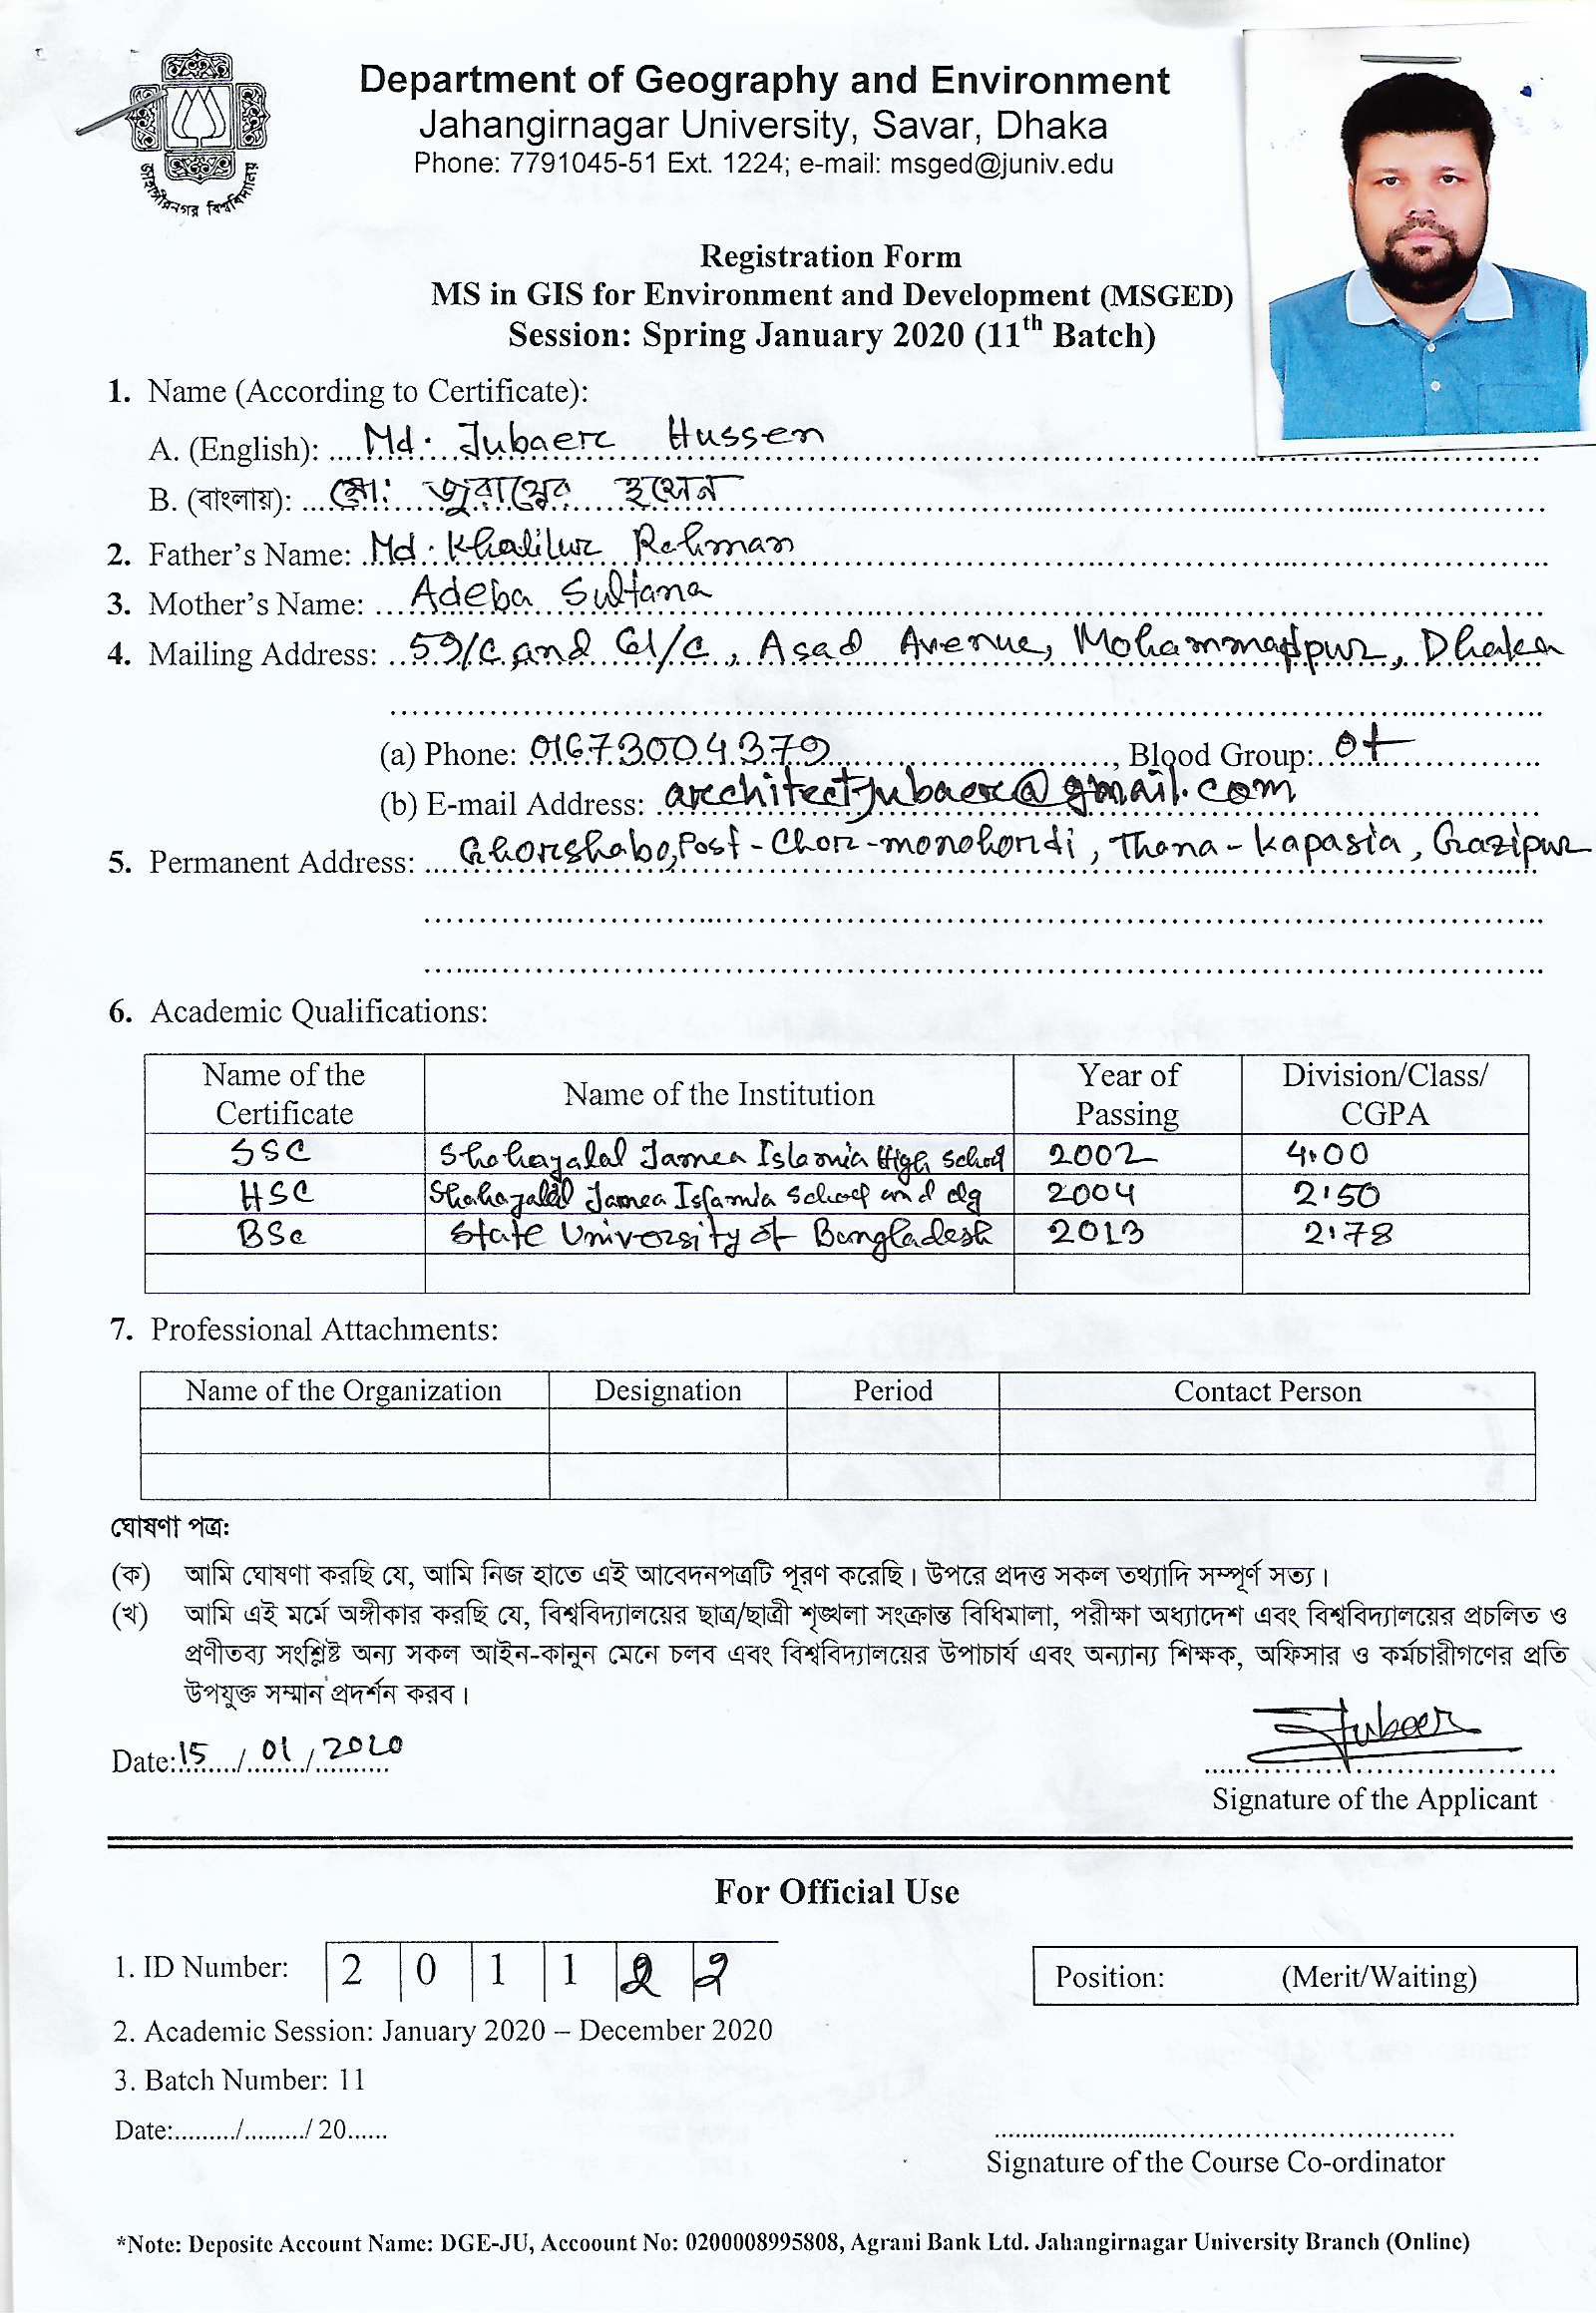 জাহাঙ্গীরনগর বিশ্ববিদ্যালয়
Department of Geography and Environment
Jahangirnagar University, Savar, Dhaka
Phone: 7791045-51 Ext. 1224; e-mail: msged@juniv.edu
Registration Form
MS in GIS for Environment and Development (MSGED)
Session: Spring January 2020 (11th Batch)
1. Name (According to Certificate):
A. (English): Md. Jubaer Hussen
B. (বাংলায়): মো: জুবায়ের হুসেন
2. Father's Name: Md. Khalilur Rehman
3. Mother's Name: Adeba Sultana
4. Mailing Address: 59/C and 61/C, Asad Avenue, Mohammadpur, Dhaka
(a) Phone: 01673004379, Blood Group: O+
(b) E-mail Address: architectjubaer@gmail.com
5. Permanent Address: Ghorshabo, Post - Chor-monohordi, Thana - Kapasia, Gazipur
6. Academic Qualifications:
Name of the Certificate | Name of the Institution | Year of Passing | Division/Class/ CGPA
SSC | Shahajalal Jamea Islamia High School | 2002 | 4.00
HSC | Shahajalal Jamea Islamia School and clg | 2004 | 2.50
BSc | State University of Bangladesh | 2013 | 2.78
7. Professional Attachments:
Name of the Organization | Designation | Period | Contact Person
ঘোষণা পত্র:
(ক) আমি ঘোষণা করছি যে, আমি নিজ হাতে এই আবেদনপত্রটি পূরণ করেছি। উপরে প্রদত্ত সকল তথ্যাদি সম্পূর্ণ সত্য।
(খ) আমি এই মর্মে অঙ্গীকার করছি যে, বিশ্ববিদ্যালয়ের ছাত্র/ছাত্রী শৃঙ্খলা সংক্রান্ত বিধিমালা, পরীক্ষা অধ্যাদেশ এবং বিশ্ববিদ্যালয়ের প্রচলিত ও
প্রণীতব্য সংশ্লিষ্ট অন্য সকল আইন-কানুন মেনে চলব এবং বিশ্ববিদ্যালয়ের উপাচার্য এবং অন্যান্য শিক্ষক, অফিসার ও কর্মচারীগণের প্রতি
উপযুক্ত সম্মান প্রদর্শন করব।
Date: 15 / 01 / 2020
Jubaer
Signature of the Applicant
For Official Use
1. ID Number: 2 0 1 1 2 2
Position: (Merit/Waiting)
2. Academic Session: January 2020 – December 2020
3. Batch Number: 11
Date:........./........./ 20......
Signature of the Course Co-ordinator
*Note: Deposite Account Name: DGE-JU, Accoount No: 0200008995808, Agrani Bank Ltd. Jahangirnagar University Branch (Online)